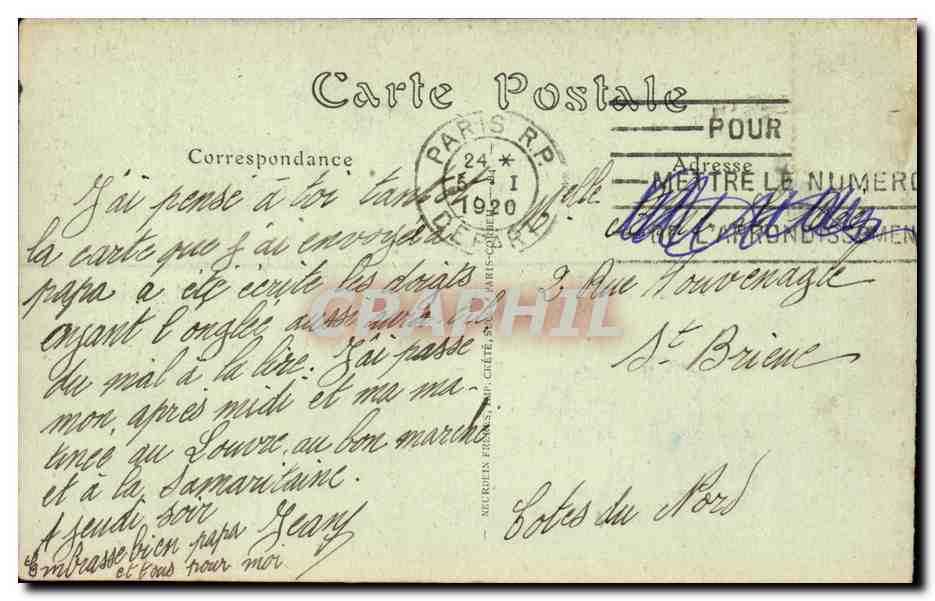 Carte Postale
Correspondance
Adresse
PARIS R.P.
24 *
5 - I
1920
DEPART
POUR
METTRE LE NUMERO
L'ARRONDISSEMEN
J'ai pensé à toi tantôt
la carte que j'ai envoyée à
papa a été écrite les doigts
ayant l'onglée aussi
du mal à la lire. J'ai passé
mon après midi et ma ma-
tinée au Louvre, au bon marché
et à la Samaritaine.
A jeudi soir
Jean
Embrasse bien papa
et tous pour moi
Melle
2 Rue Houvenagle
St Brieuc
Cotes du Nord
NEURDEIN FRÈRES, IMP. CRÉTÉ, PARIS-CORBEIL
CRAPHIL